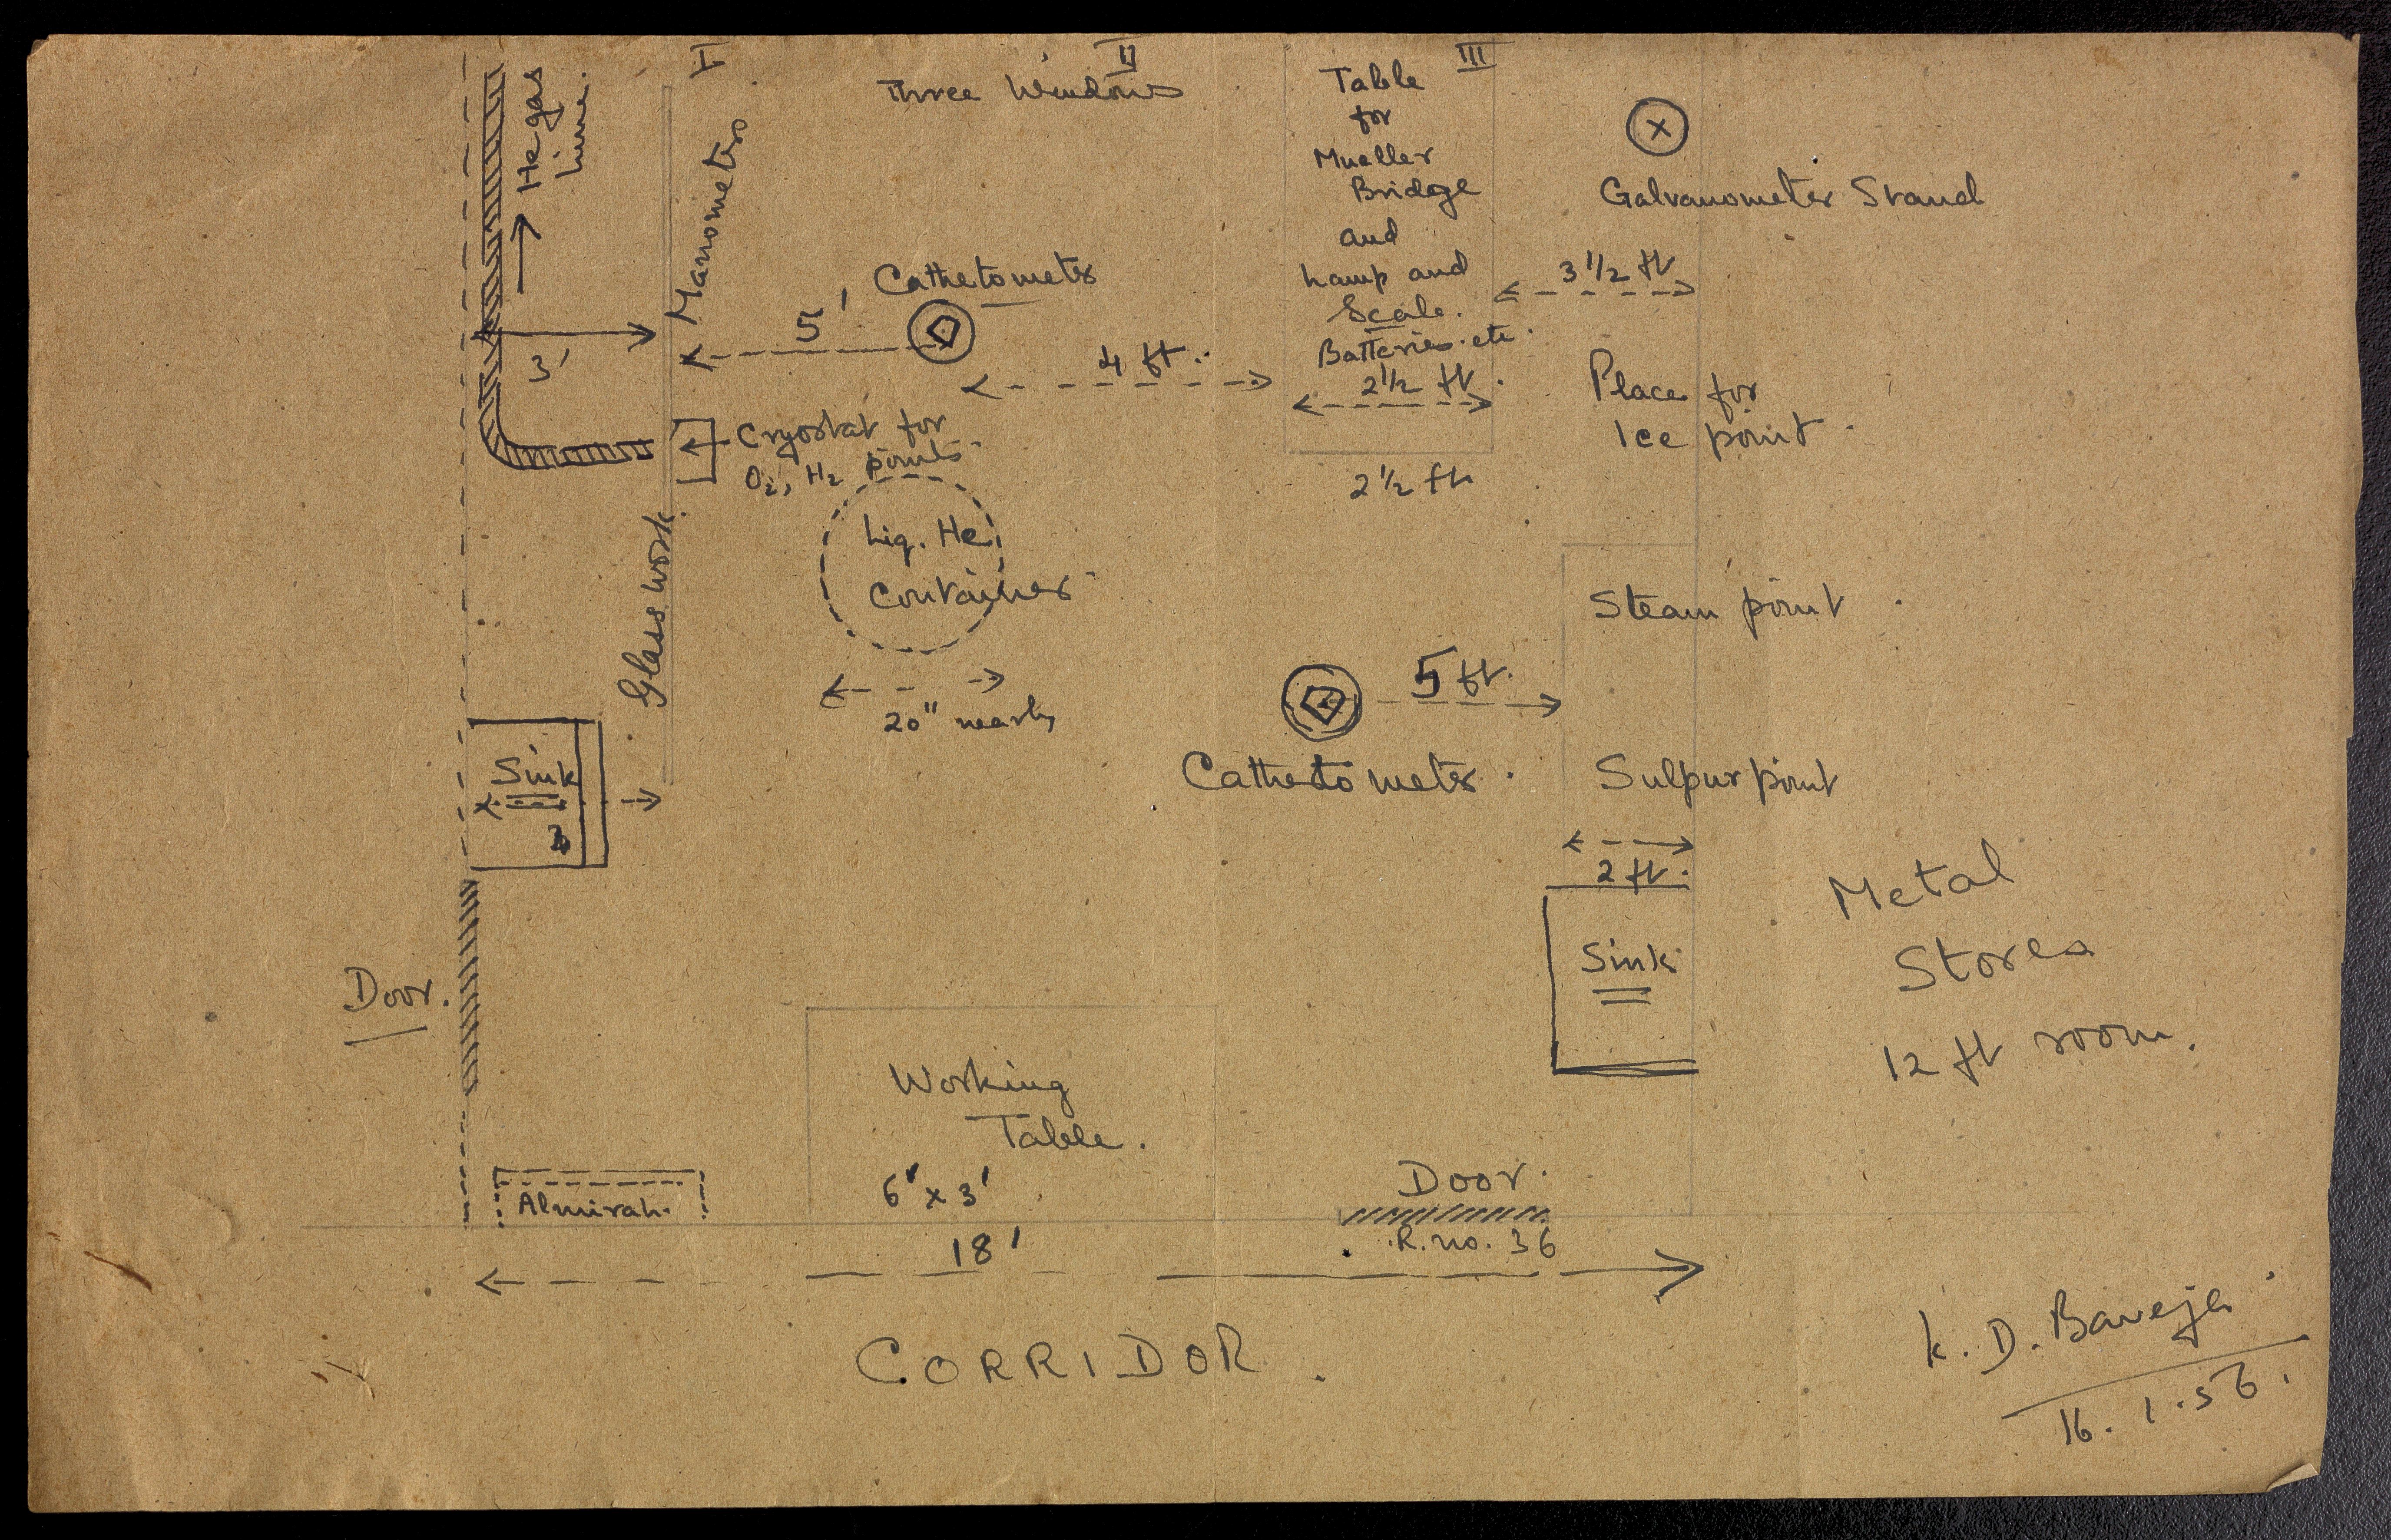 I
II
III
Three Windows
He gas
Line.
Manometers
Table
for
Mueller
Bridge
and
Lamp and
Scale.
Batteries. etc.
2 1/2 ft.
2 1/2 ft.
X
Galvanometer Stand
3 1/2 ft
Cathetometer
5'
3'
4 ft.
Place for
Ice point.
Cryostat for
O2, H2 points
Liq. He
Container
20" nearly
Glass work.
Steam point
5 ft.
Cathetometer.
Sulpur point
2 ft.
Sink
Sink
Metal
Stores
12 ft room.
Door.
Working
Table.
6' x 3'
Almirah.
Door.
R. no. 36
18'
CORRIDOR.
K. D. Baveja
16. 1. 56.